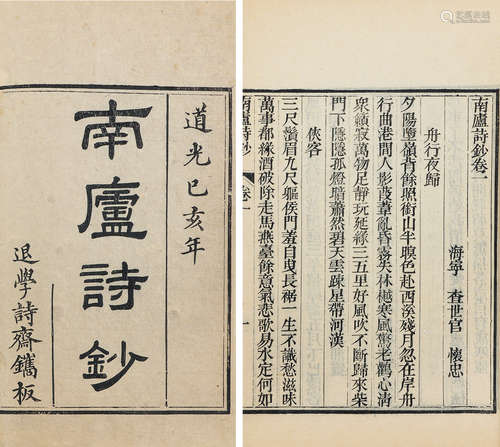 道光己亥年
南廬詩鈔
退學詩齋鐫板
南廬詩鈔卷一
海寧 查世官 懷忠
舟行夜歸
夕陽墮嶺背餘照銜山半暝色赴西溪殘月忽在岸舟
行曲港間人影葭葦亂昏霧失林樾寒風驚老鸛心清
衆籟寂萬物足靜玩延緣三五里好風吹不斷歸來柴
門下隱隱孤燈暗蕭然碧天雲疎星帶河漢
俠客
三尺鬚眉九尺軀侯門羞自曳長裾一生不識愁滋味
萬事都緣酒破除走馬燕臺餘意氣悲歌易水定何如
南廬詩鈔 卷一 一